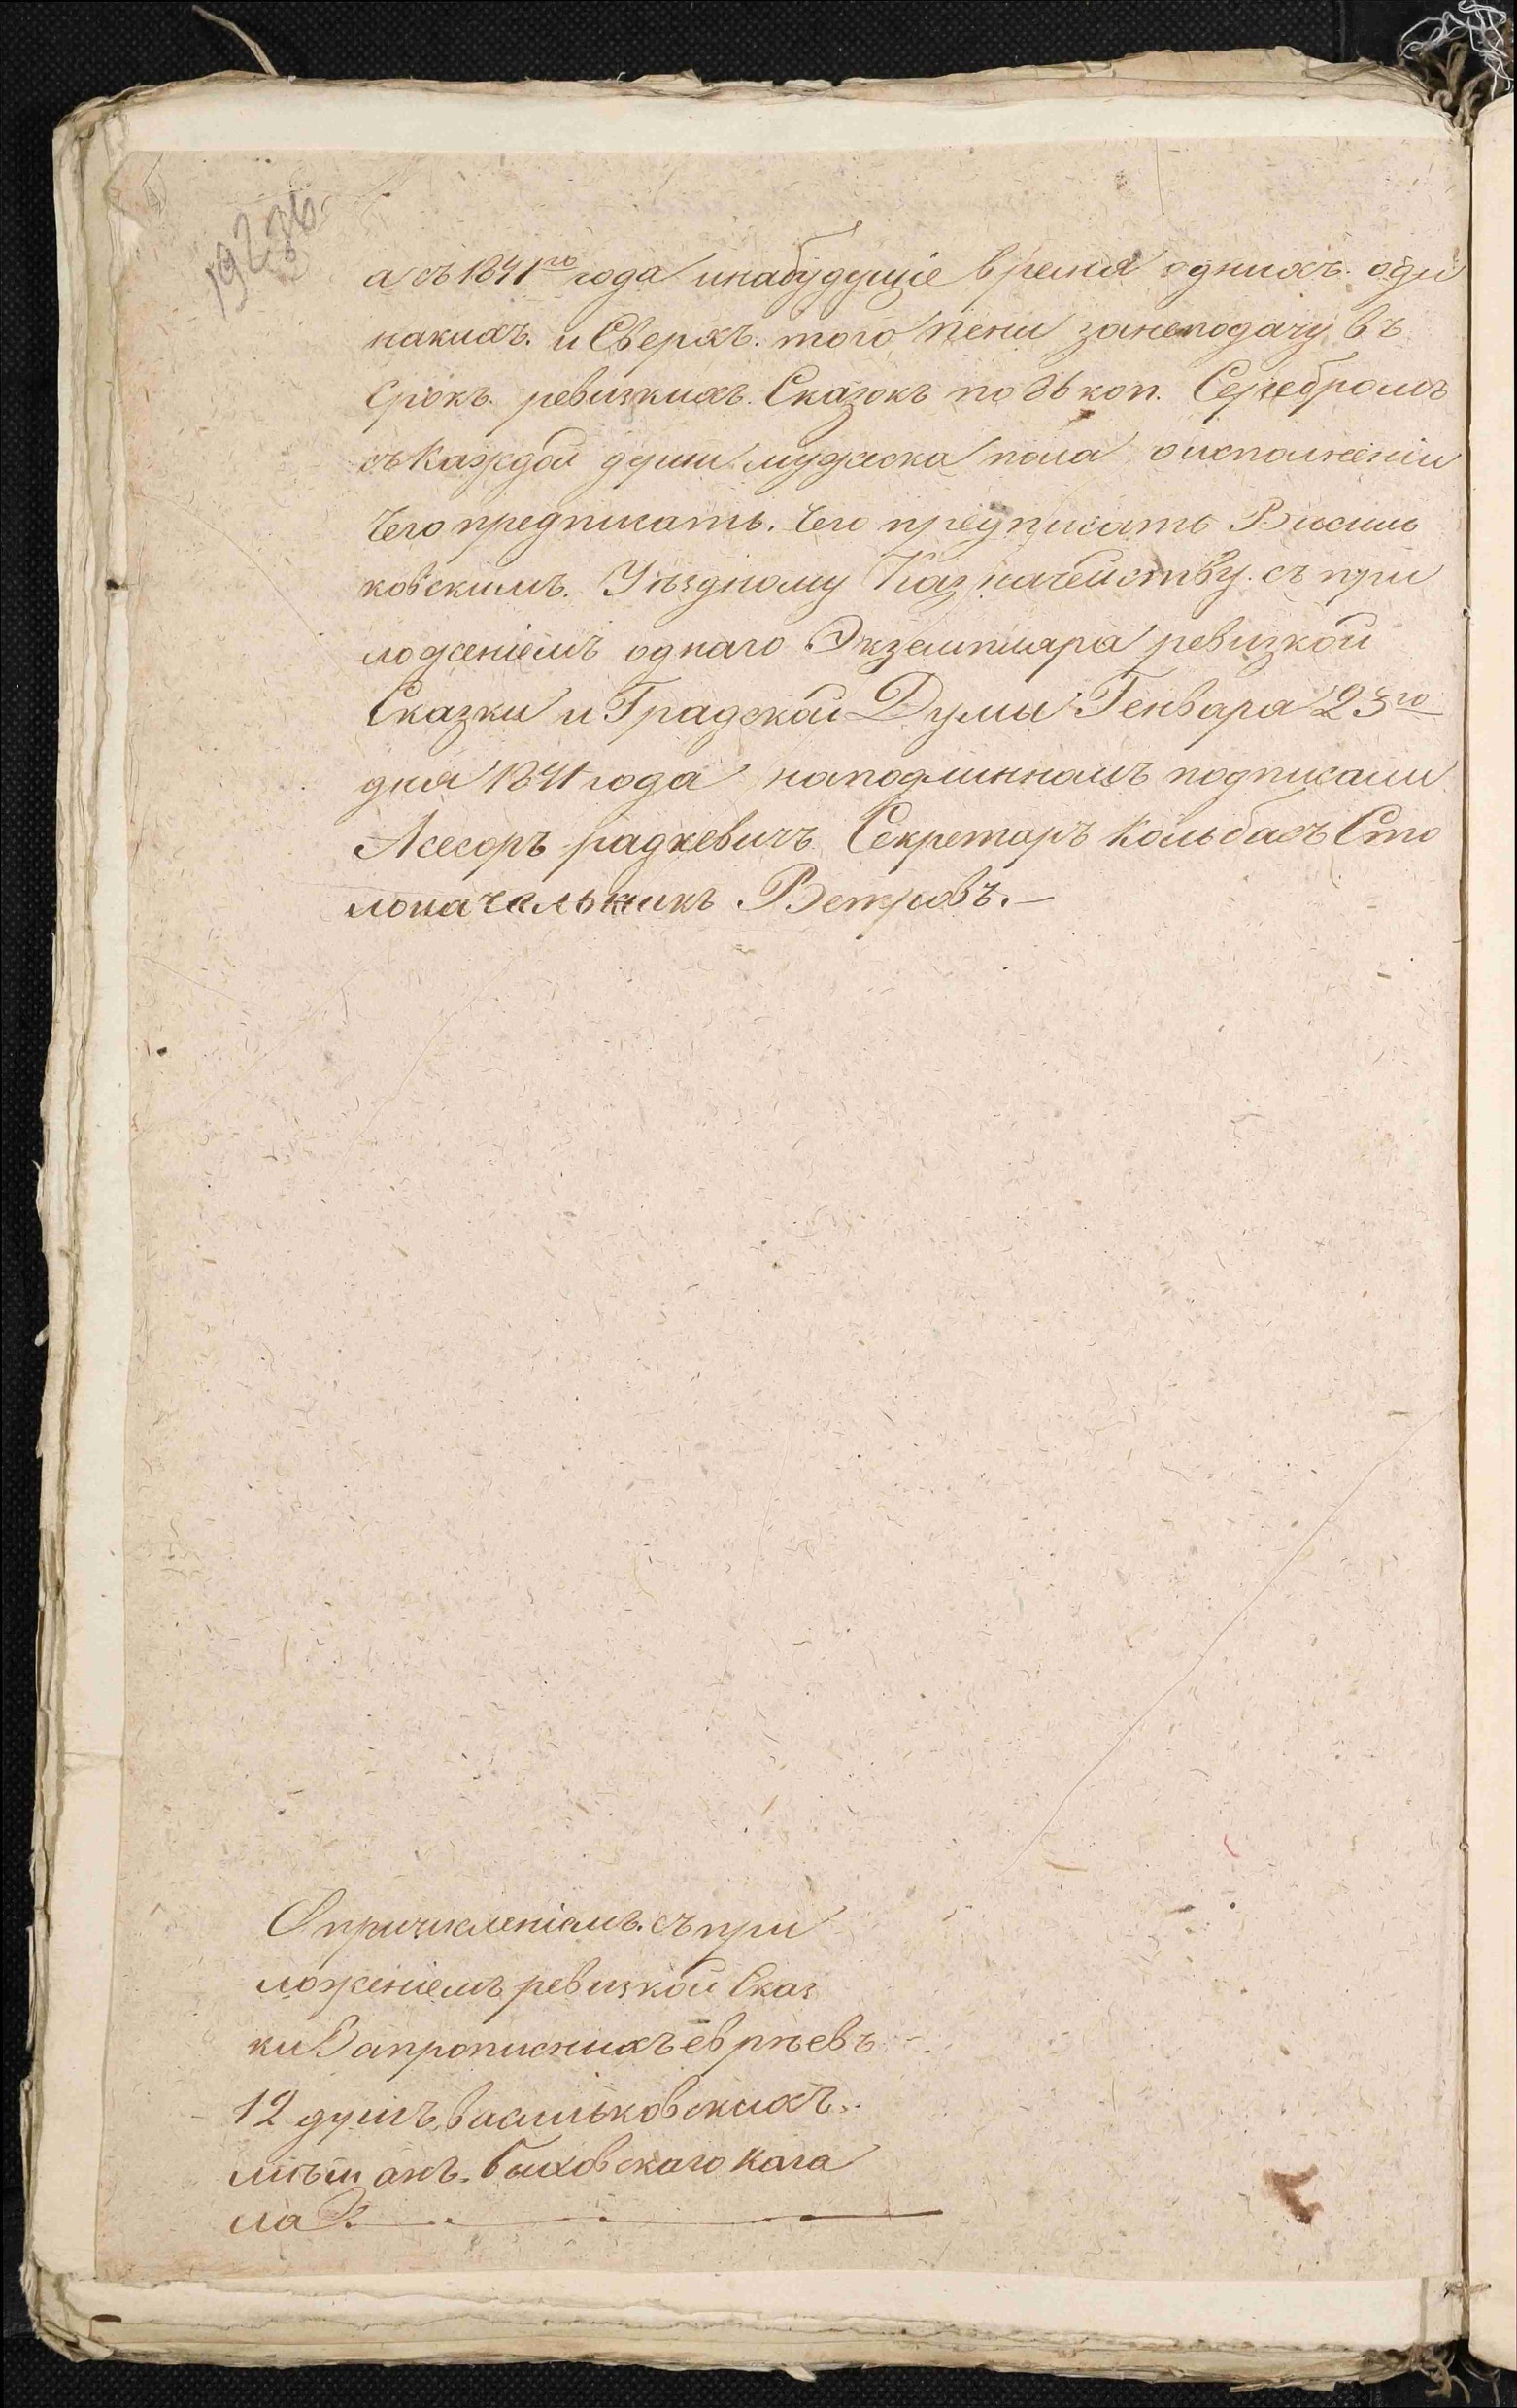 а съ 1841го года инабудущіе время однихъ. оди
накихъ. и Сверхъ. того пени занеподачу въ
Срокъ. ревизкихъ. Сказокъ по 36 коп. Серебромъ
съ Каждой души мужеска пола о исполненіи
Чего предписать. Чего предписать Василь
ковскимъ. Уѣздному Казначейству. съ при
ложеніемъ однаго Экземпляра ревизкой
Сказки и Градской Думы Генваря 23го
дня 1841 года наподлинномъ подписали
Асесоръ радкевичъ Секретаръ Кольбасъ Сто
лоначальникъ Ветровъ.—
Опричисленіемъ. съ при
ложеніемъ ревизкой Сказ
ки прописныхъ еврѣевъ
12 душъ васильковскихъ.
мѣщанъ. быховскаго Кага
ла.